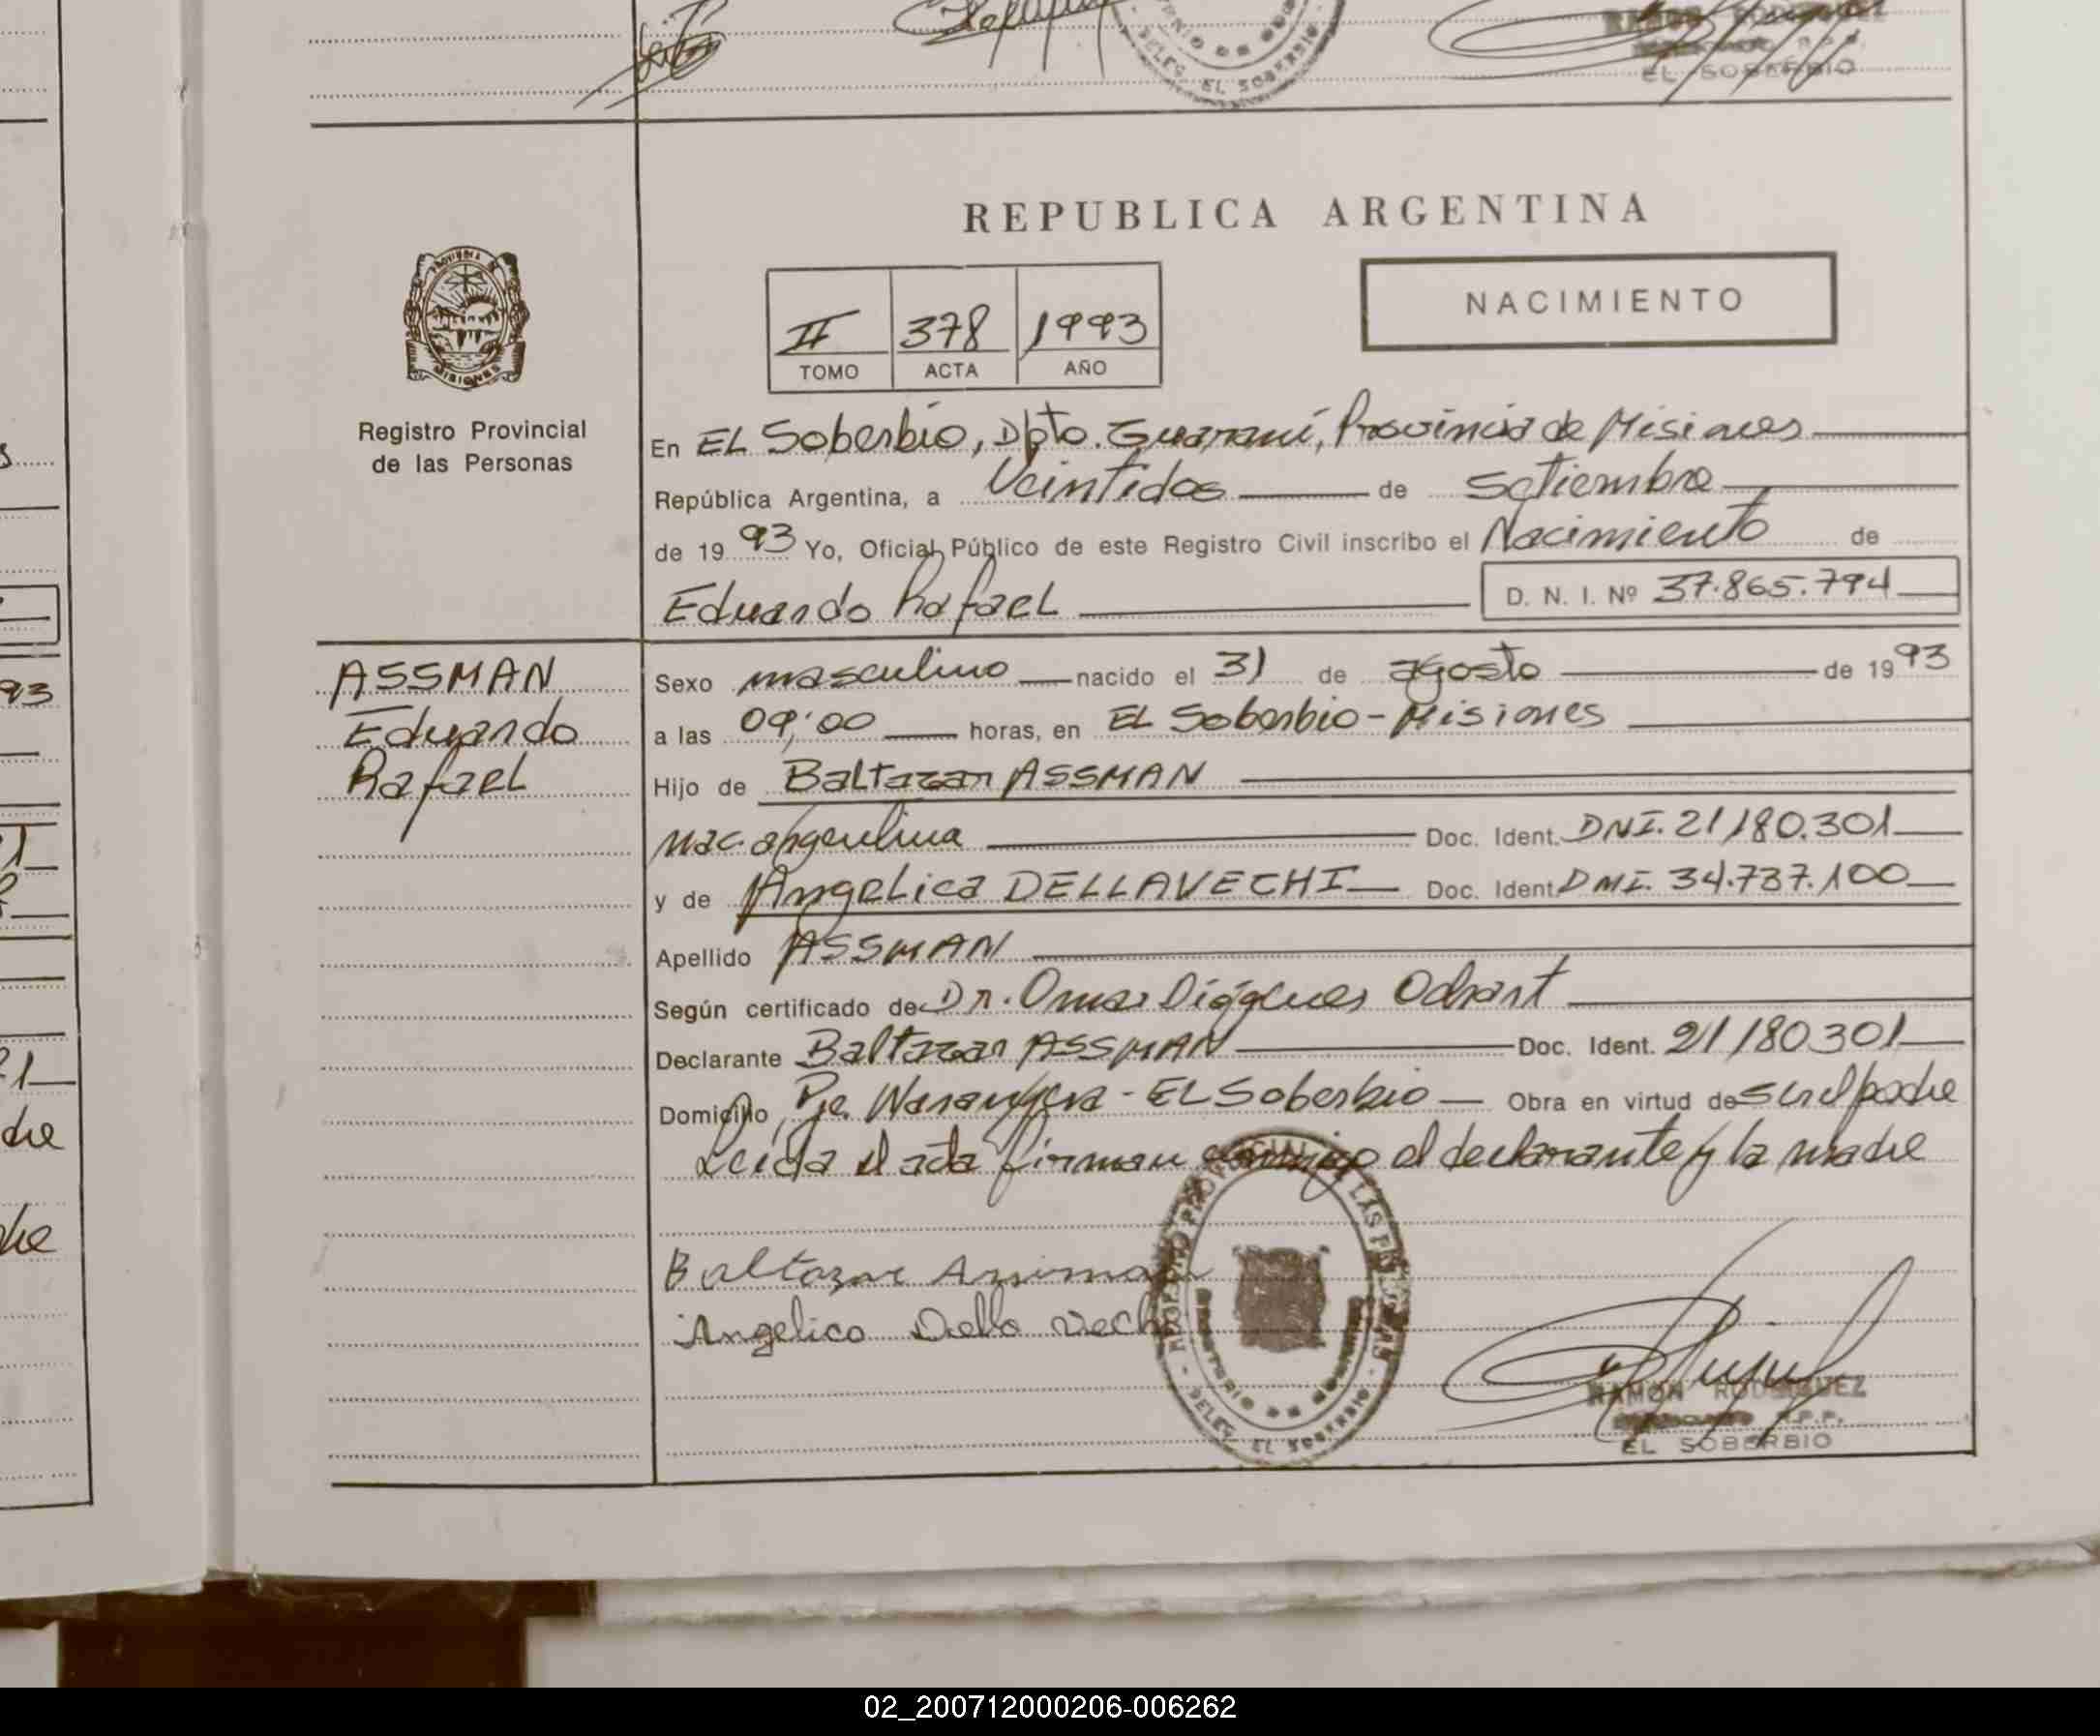 EL SOBERBIO
REPUBLICA ARGENTINA
NACIMIENTO
II 378 1993
TOMO ACTA AÑO
Registro Provincial
de las Personas
En EL Soberbio, Dpto. Guaraní, Provincia de Misiones
República Argentina, a Veintidos de Setiembre
de 1993 Yo, Oficial Público de este Registro Civil inscribo el Nacimiento de
Eduardo Rafael D. N. I. Nº 37.865.794
ASSMAN
Eduardo
Rafael
Sexo masculino nacido el 31 de agosto de 1993
a las 09;00 horas, en EL Soberbio - Misiones
Hijo de Baltazar ASSMAN
nac. argentina Doc. Ident. DNI. 21180.301
y de Angelica DELLAVECHI Doc. Ident. DNI. 34.737.100
Apellido ASSMAN
Según certificado de Dr. Omar
Declarante Baltazar ASSMAN Doc. Ident. 21180301
Domicilio Pje - EL Soberbio Obra en virtud de ser el padre
Leída el acta firman conmigo el declarante y la madre
Baltazar Assman
Angelica Della Vechi
RAMON RODRIGUEZ
R.P.P.
EL SOBERBIO
DELEG. EL SOBERBIO
02_200712000206-006262